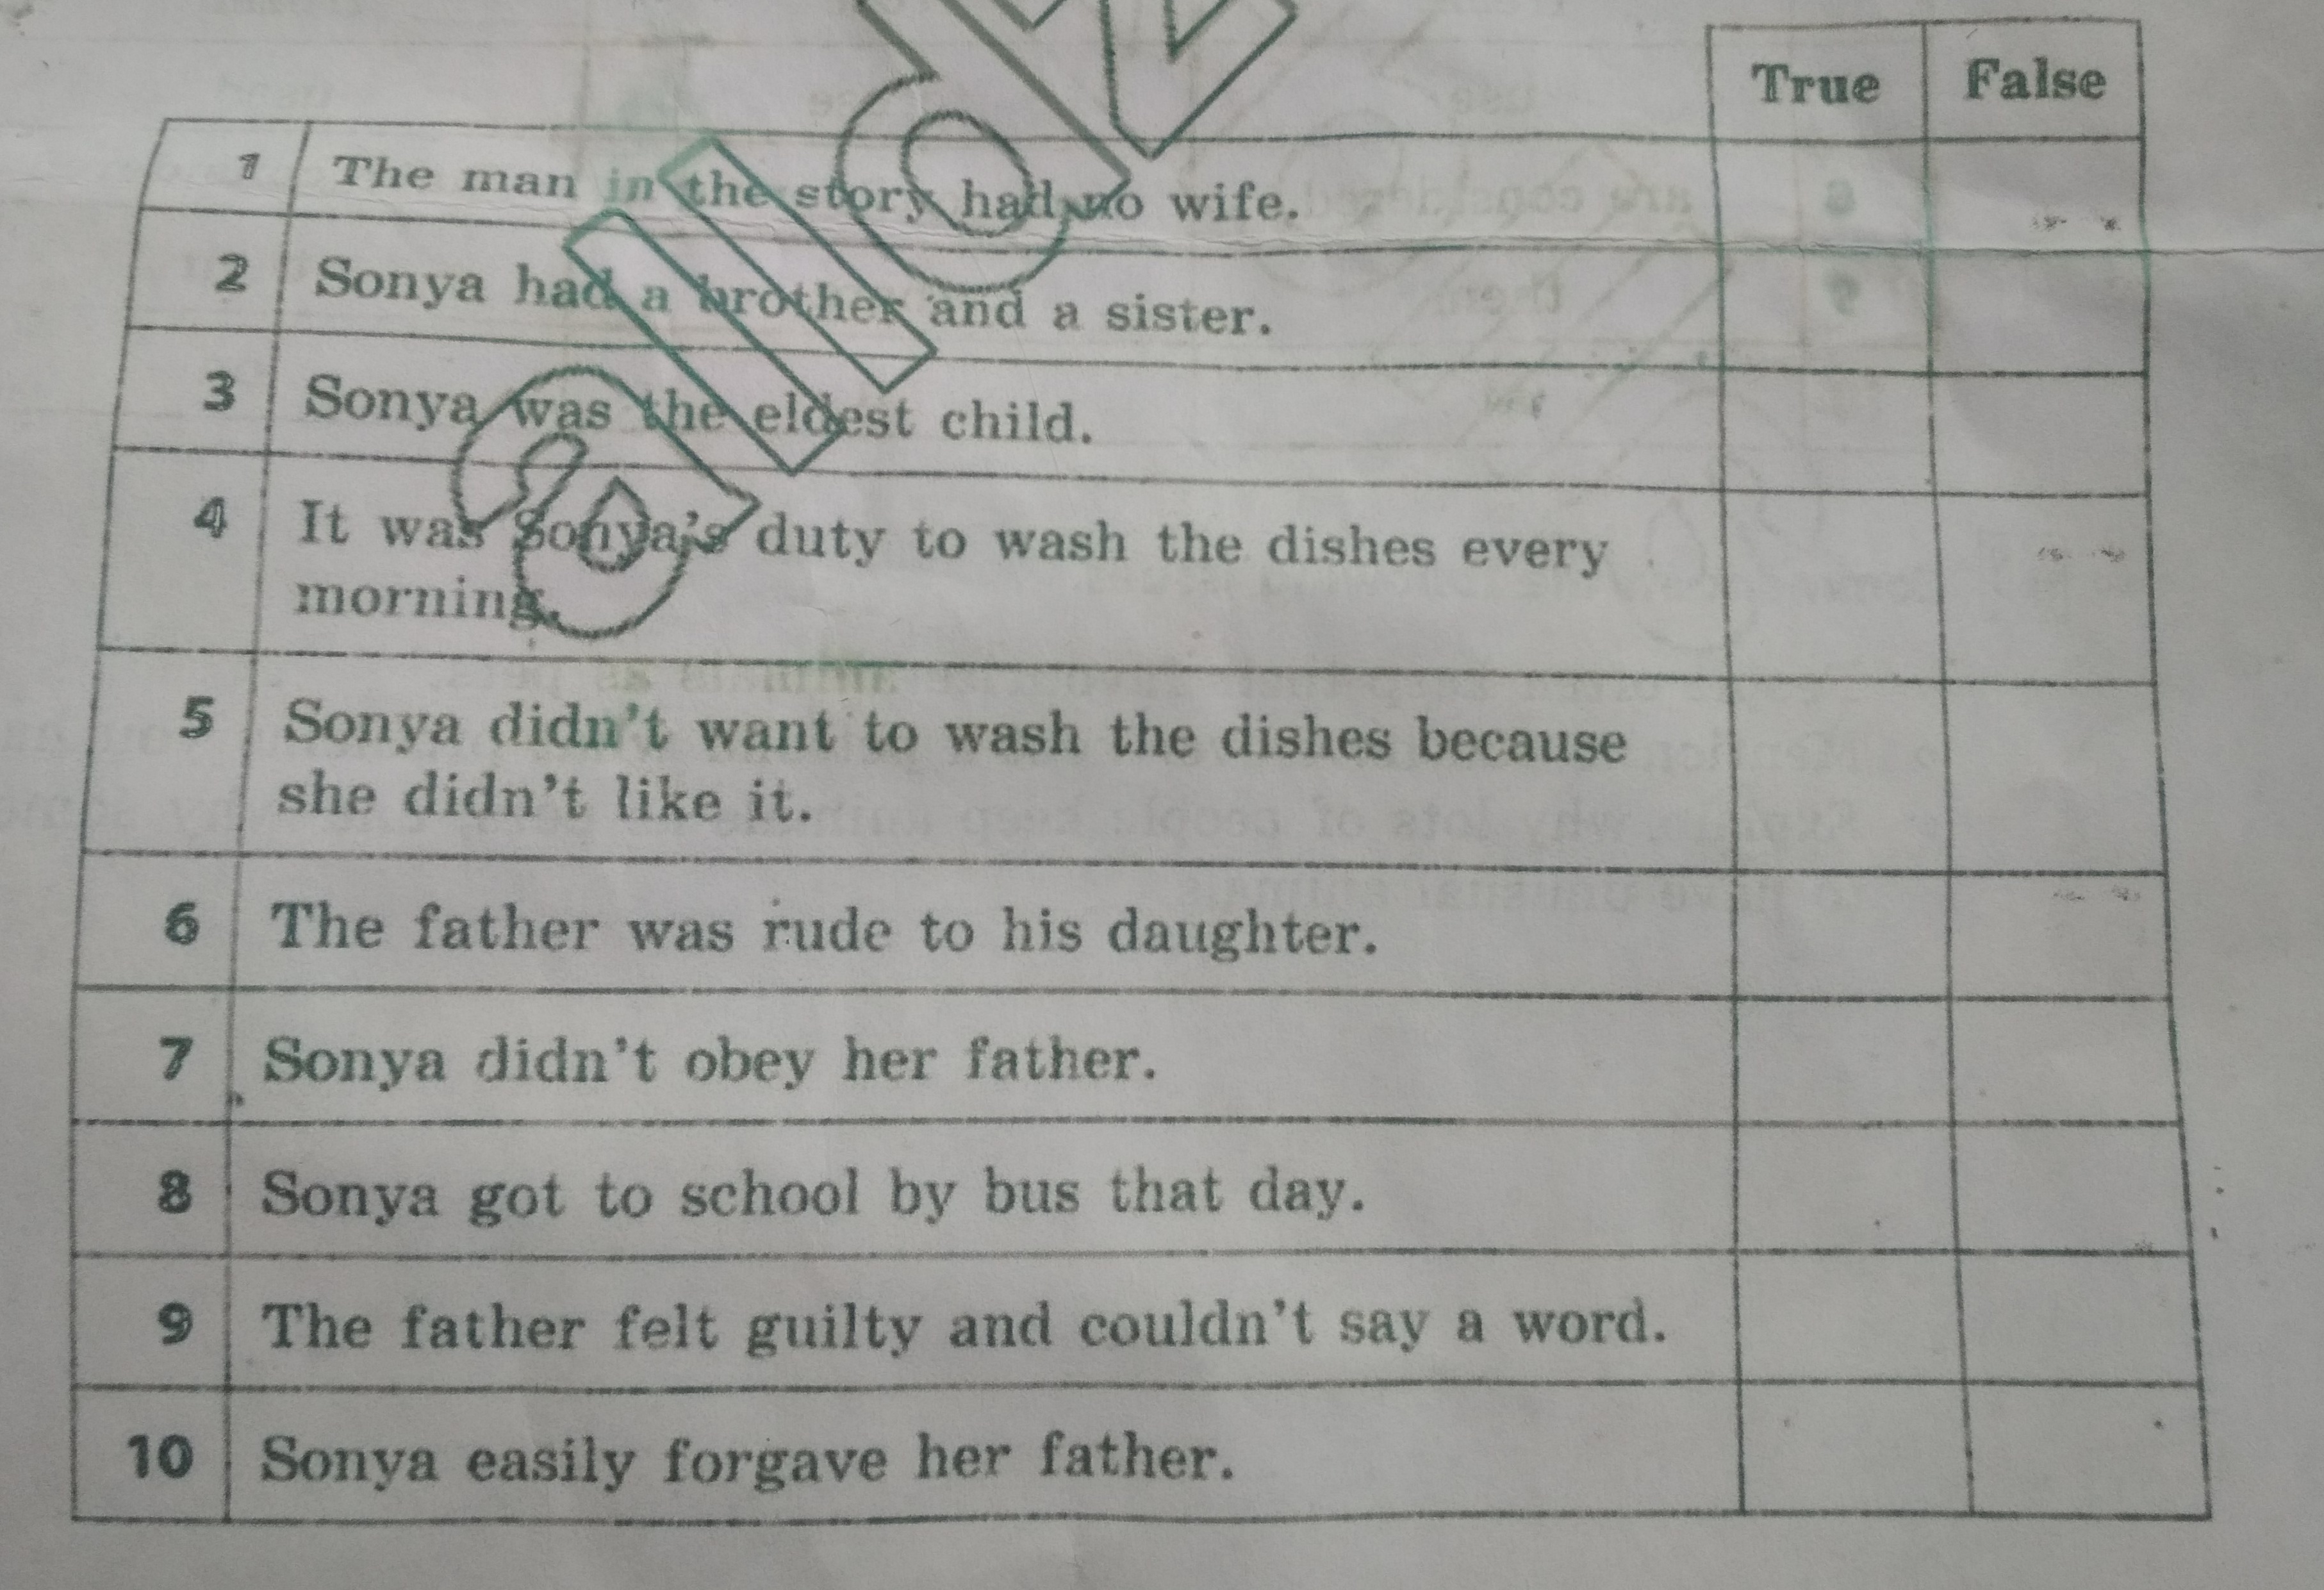 True False
1 The man in the story had no wife.
2 Sonya had a brother and a sister.
3 Sonya was the eldest child.
4 It was Sonya's duty to wash the dishes every
morning.
5 Sonya didn't want to wash the dishes because
she didn't like it.
6 The father was rude to his daughter.
7 Sonya didn't obey her father.
8 Sonya got to school by bus that day.
9 The father felt guilty and couldn't say a word.
10 Sonya easily forgave her father.